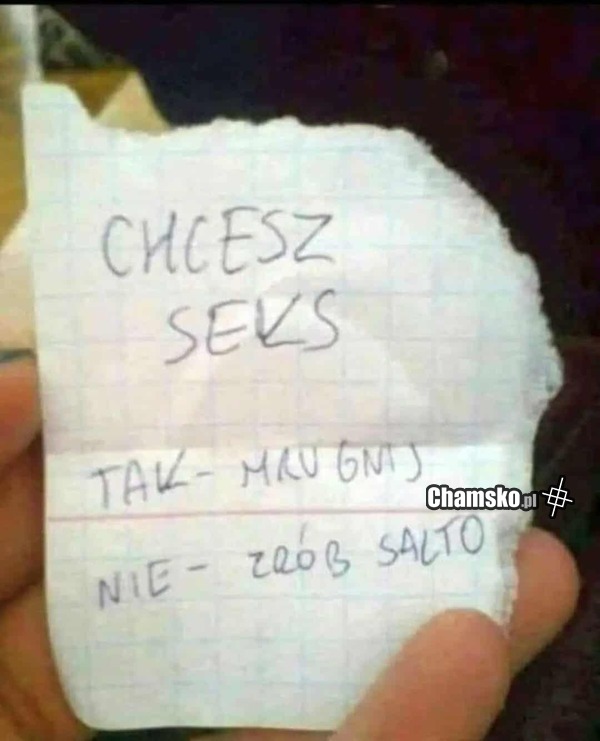 CHCESZ
SEKS
TAK- MRUGNIJ
Chamsko.pl
NIE- ZRÓB SALTO